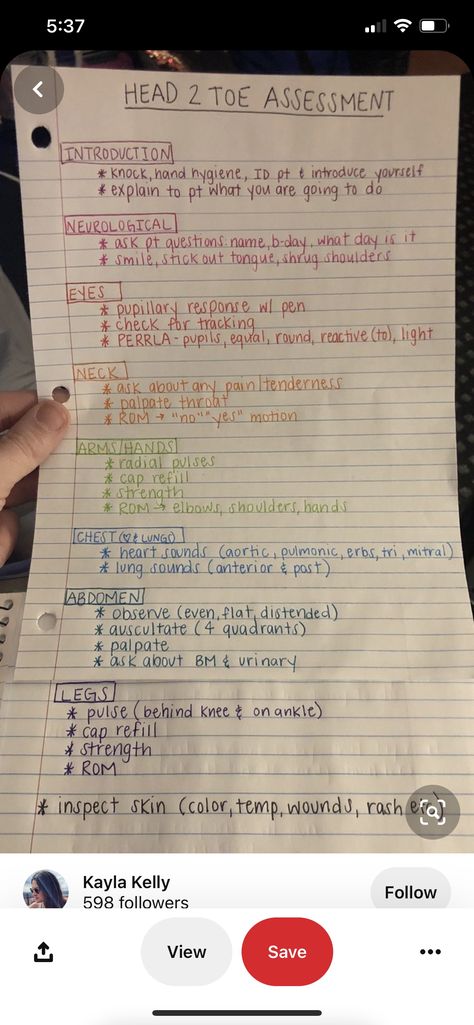 5:37
HEAD 2 TOE ASSESSMENT
INTRODUCTION
* knock, hand hygiene, ID pt & introduce yourself
* explain to pt what you are going to do
NEUROLOGICAL
* ask pt questions: name, b-day, what day is it
* smile, stick out tongue, shrug shoulders
EYES
* pupillary response w/ pen
* check for tracking
* PERRLA - pupils, equal, round, reactive (to), light
NECK
* ask about any pain/tenderness
* palpate throat
* ROM → "no" "yes" motion
ARMS/HANDS
* radial pulses
* cap refill
* strength
* ROM → elbows, shoulders, hands
CHEST (♡ & LUNGS)
* heart sounds (aortic, pulmonic, erbs, tri, mitral)
* lung sounds (anterior & post)
ABDOMEN
* observe (even, flat, distended)
* auscultate (4 quadrants)
* palpate
* ask about BM & urinary
LEGS
* pulse (behind knee & on ankle)
* cap refill
* strength
* ROM
* inspect skin (color, temp, wounds, rash
Kayla Kelly
598 followers
Follow
View
Save